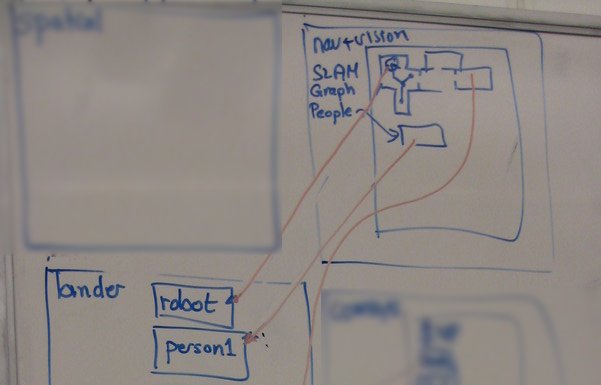 spatial
nav+vision
SLAM
Graph
People
lander
robot
person1